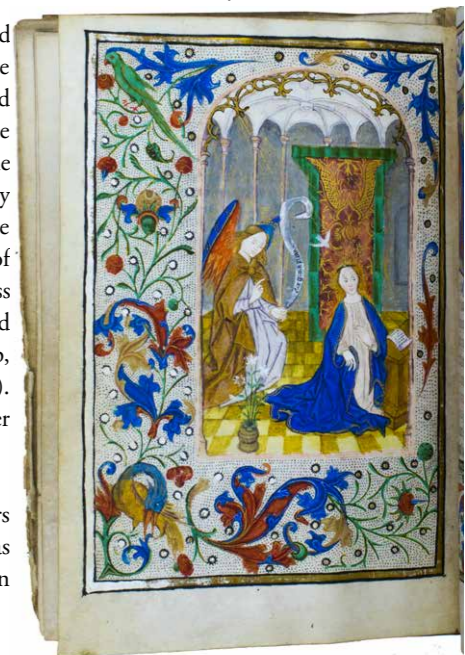 d
e
d
e
e
y
e
of
ss
d
o,
).
er
rs
as
n